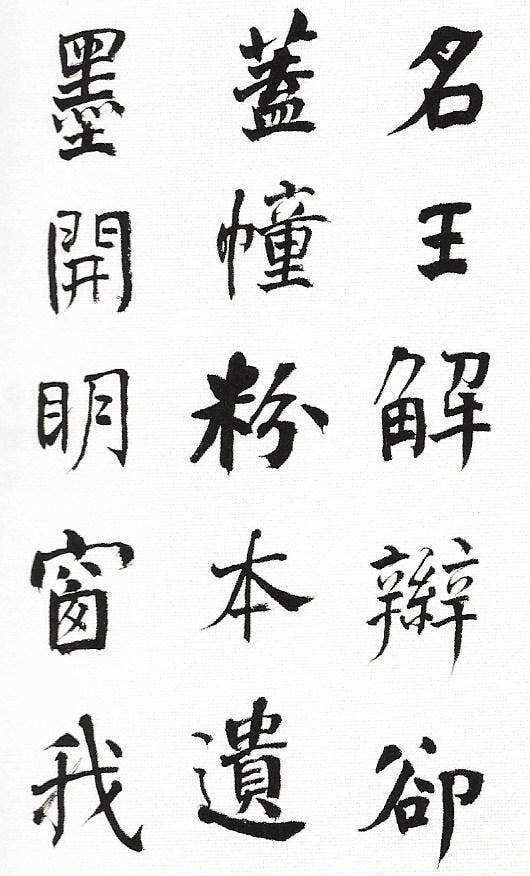 名王解辮卻
蓋幢粉本遺
墨開明窗我